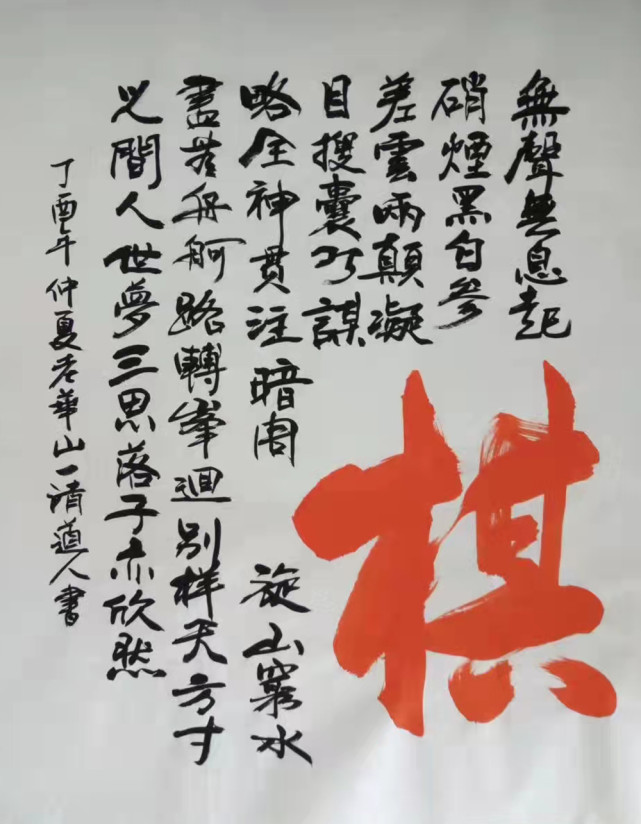 無聲無息起
硝煙黑白參
差雲雨顛凝
目搜囊巧謀
略全神貫注暗周
旋山窮水
盡若舟舸路轉峯迴別樣天方寸
之間人世夢三思落子亦欣然
丁酉年仲夏老華山一清道人書
棋